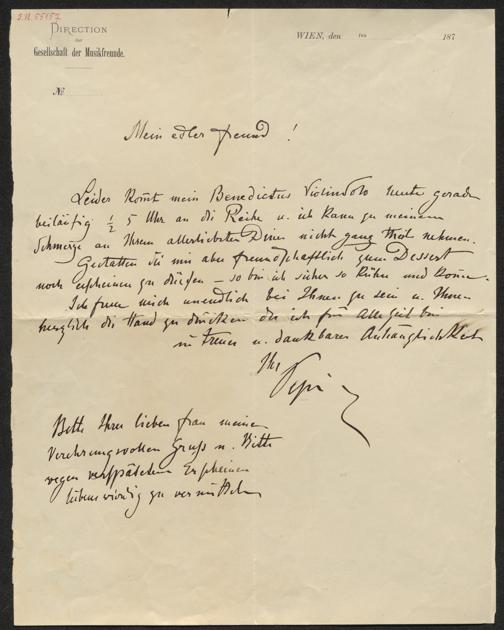 I.N. 55152
DIRECTION
der
Gesellschaft der Musikfreunde.
WIEN, den ten 187
№
Mein edler Freund!
Leider kom̄t mein Benedictus Violinsolo heute gerade
beiläufig ½ 5 Uhr an die Reihe u. ich kann zu meinem
Schmerze an Ihrem allerliebsten Diner nicht ganz theil nehmen.
Gestatten Sie mir aber freundschaftlich zum Dessert
noch erscheinen zu dürfen – so bin ich sicher so kühn und kom̄e.
Ich freue mich unendlich bei Ihnen zu sein u. Ihnen
herzlich die Hand zu drücken der ich für alle Zeit bin
in treuer u. dankbarer Anhänglichkeit
Ihr
Pepi
Bitte Ihrer lieben Frau meinen
Verehrungsvollen Gruß u. Bitte
wegen verspätetem Erscheinen
liebenswürdig zu vermitteln